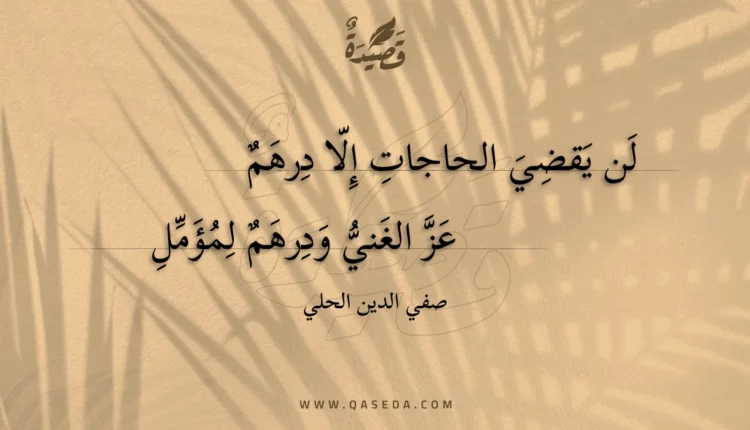 قَصِيْدَةٌ
لَن يَقضِيَ الحاجاتِ إِلّا دِرهَمٌ
عَزَّ الغَنيُّ وَدِرهَمٌ لِمُؤَمِّلِ
صفي الدين الحلي
WWW.QASEDA.COM